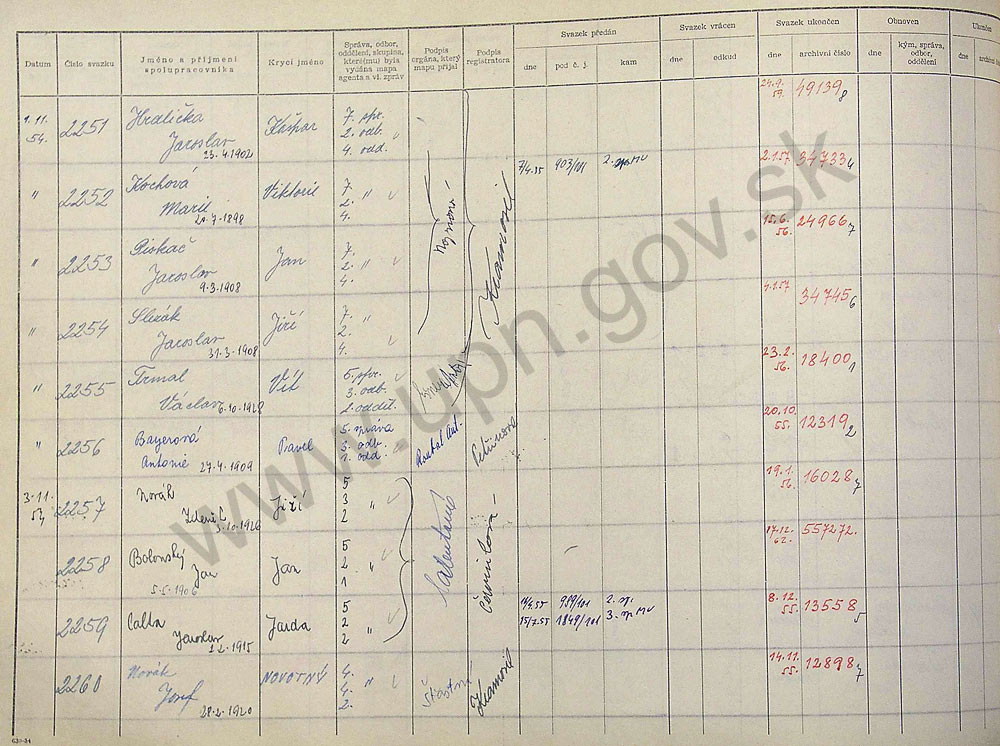 Datum
Číslo svazku
Jméno a příjmení
spolupracovníka
Krycí jméno
Správa, odbor,
oddělení, skupina,
které(mu) byla
vydána mapa
agenta a vl. zpráv
Podpis
orgána, který
mapu přijal
Podpis
registratora
Svazek předán
dne pod č. j. kam
Svazek vrácen
dne odkud
Svazek ukončen
dne archivní číslo
Obnoven
dne
kým, správa,
odbor,
oddělení
1.11.
54.
2251
Hrdlička
Jaroslav
23.4.1902
Kašpar
7. spr.
2. odb.
4. odd.
24.9.
59.
49139 8
" 2252
Kochová
Marie
Viktorie
7.
2. "
4.
7/4.55 903/101 2. sp. MV
2.1.57 34733 4
" 2253
Piskač
Jaroslav
9.3.1908
Jan
7.
2. "
4.
15.6.
56.
24966 7
" 2254
Slezák
Jaroslav
31.3.1908
Jiří
7.
2. "
4.
4.1.57
34745 6
" 2255
Trmal
Václav 6.10.1928
Vít
6. spr.
3. odb.
2. odděl.
23.2.
56.
18400 1
" 2256
Bayerová
Antonie 27.4.1909
Pavel
5. správa
3. odb.
1. odd.
Roubal Ant.
20.10.
55.
12319 2
3.11.
54.
2257
Novák
Zdeněk
3.10.1926
Jiří
5
3 "
2
19.1.
56.
16028 7
2258
Bolonský
Jan
5.5.1906
Jan
5
2 "
1
17.12.
62.
557272.
2259
Calta
Jaroslav
2.2.1915
Jarda
5
2
2 "
959/101 2. sp.
15/7.55 1849/101 3. sp MV
8.12.
55.
13558 5
2260
Novák
Josef
28.2.1920
NOVOTNÝ
4.
4. "
2.
Šťastná
14.11.
55.
12898 7
www.upn.gov.sk